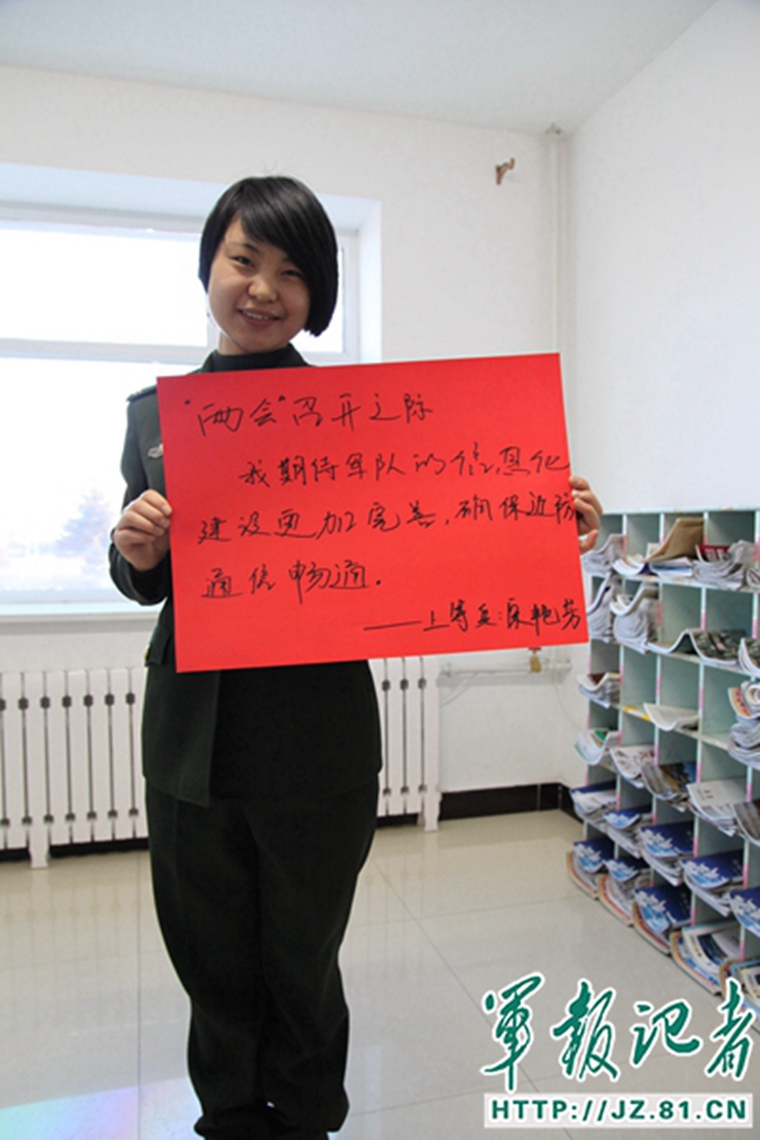 "两会"召开之际
我期待军队的信息化
建设更加完善，确保边防
通信畅通。
——上等兵：宋艳芳
軍報记者
HTTP://JZ.81.CN